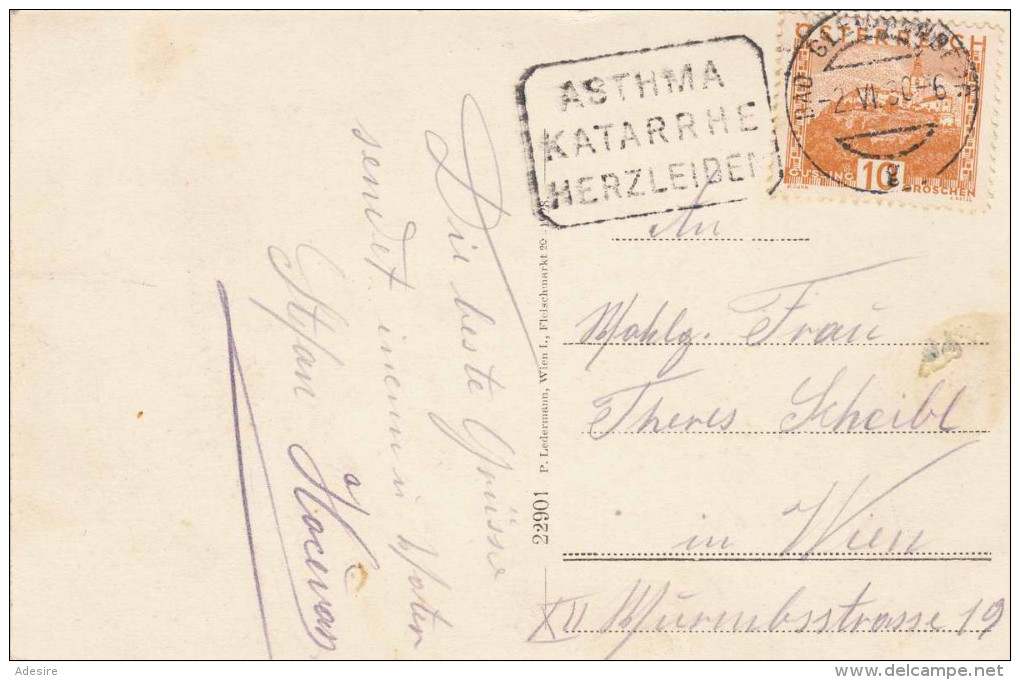 ASTHMA
KATARRHE
HERZLEIDEN
ÖSTERREICH
BAD GLEICHENBERG
-2.VI.30-6
GÜSSING 10 GROSCHEN
An
Wohlg. Frau
Theres Scheibl
in Wien
XII Wurmbstrasse 19
22901 P. Ledermann, Wien I., Fleischmarkt 20
Die beste Grüsse
sendet
Stefan
Adesire
www.delcampe.net